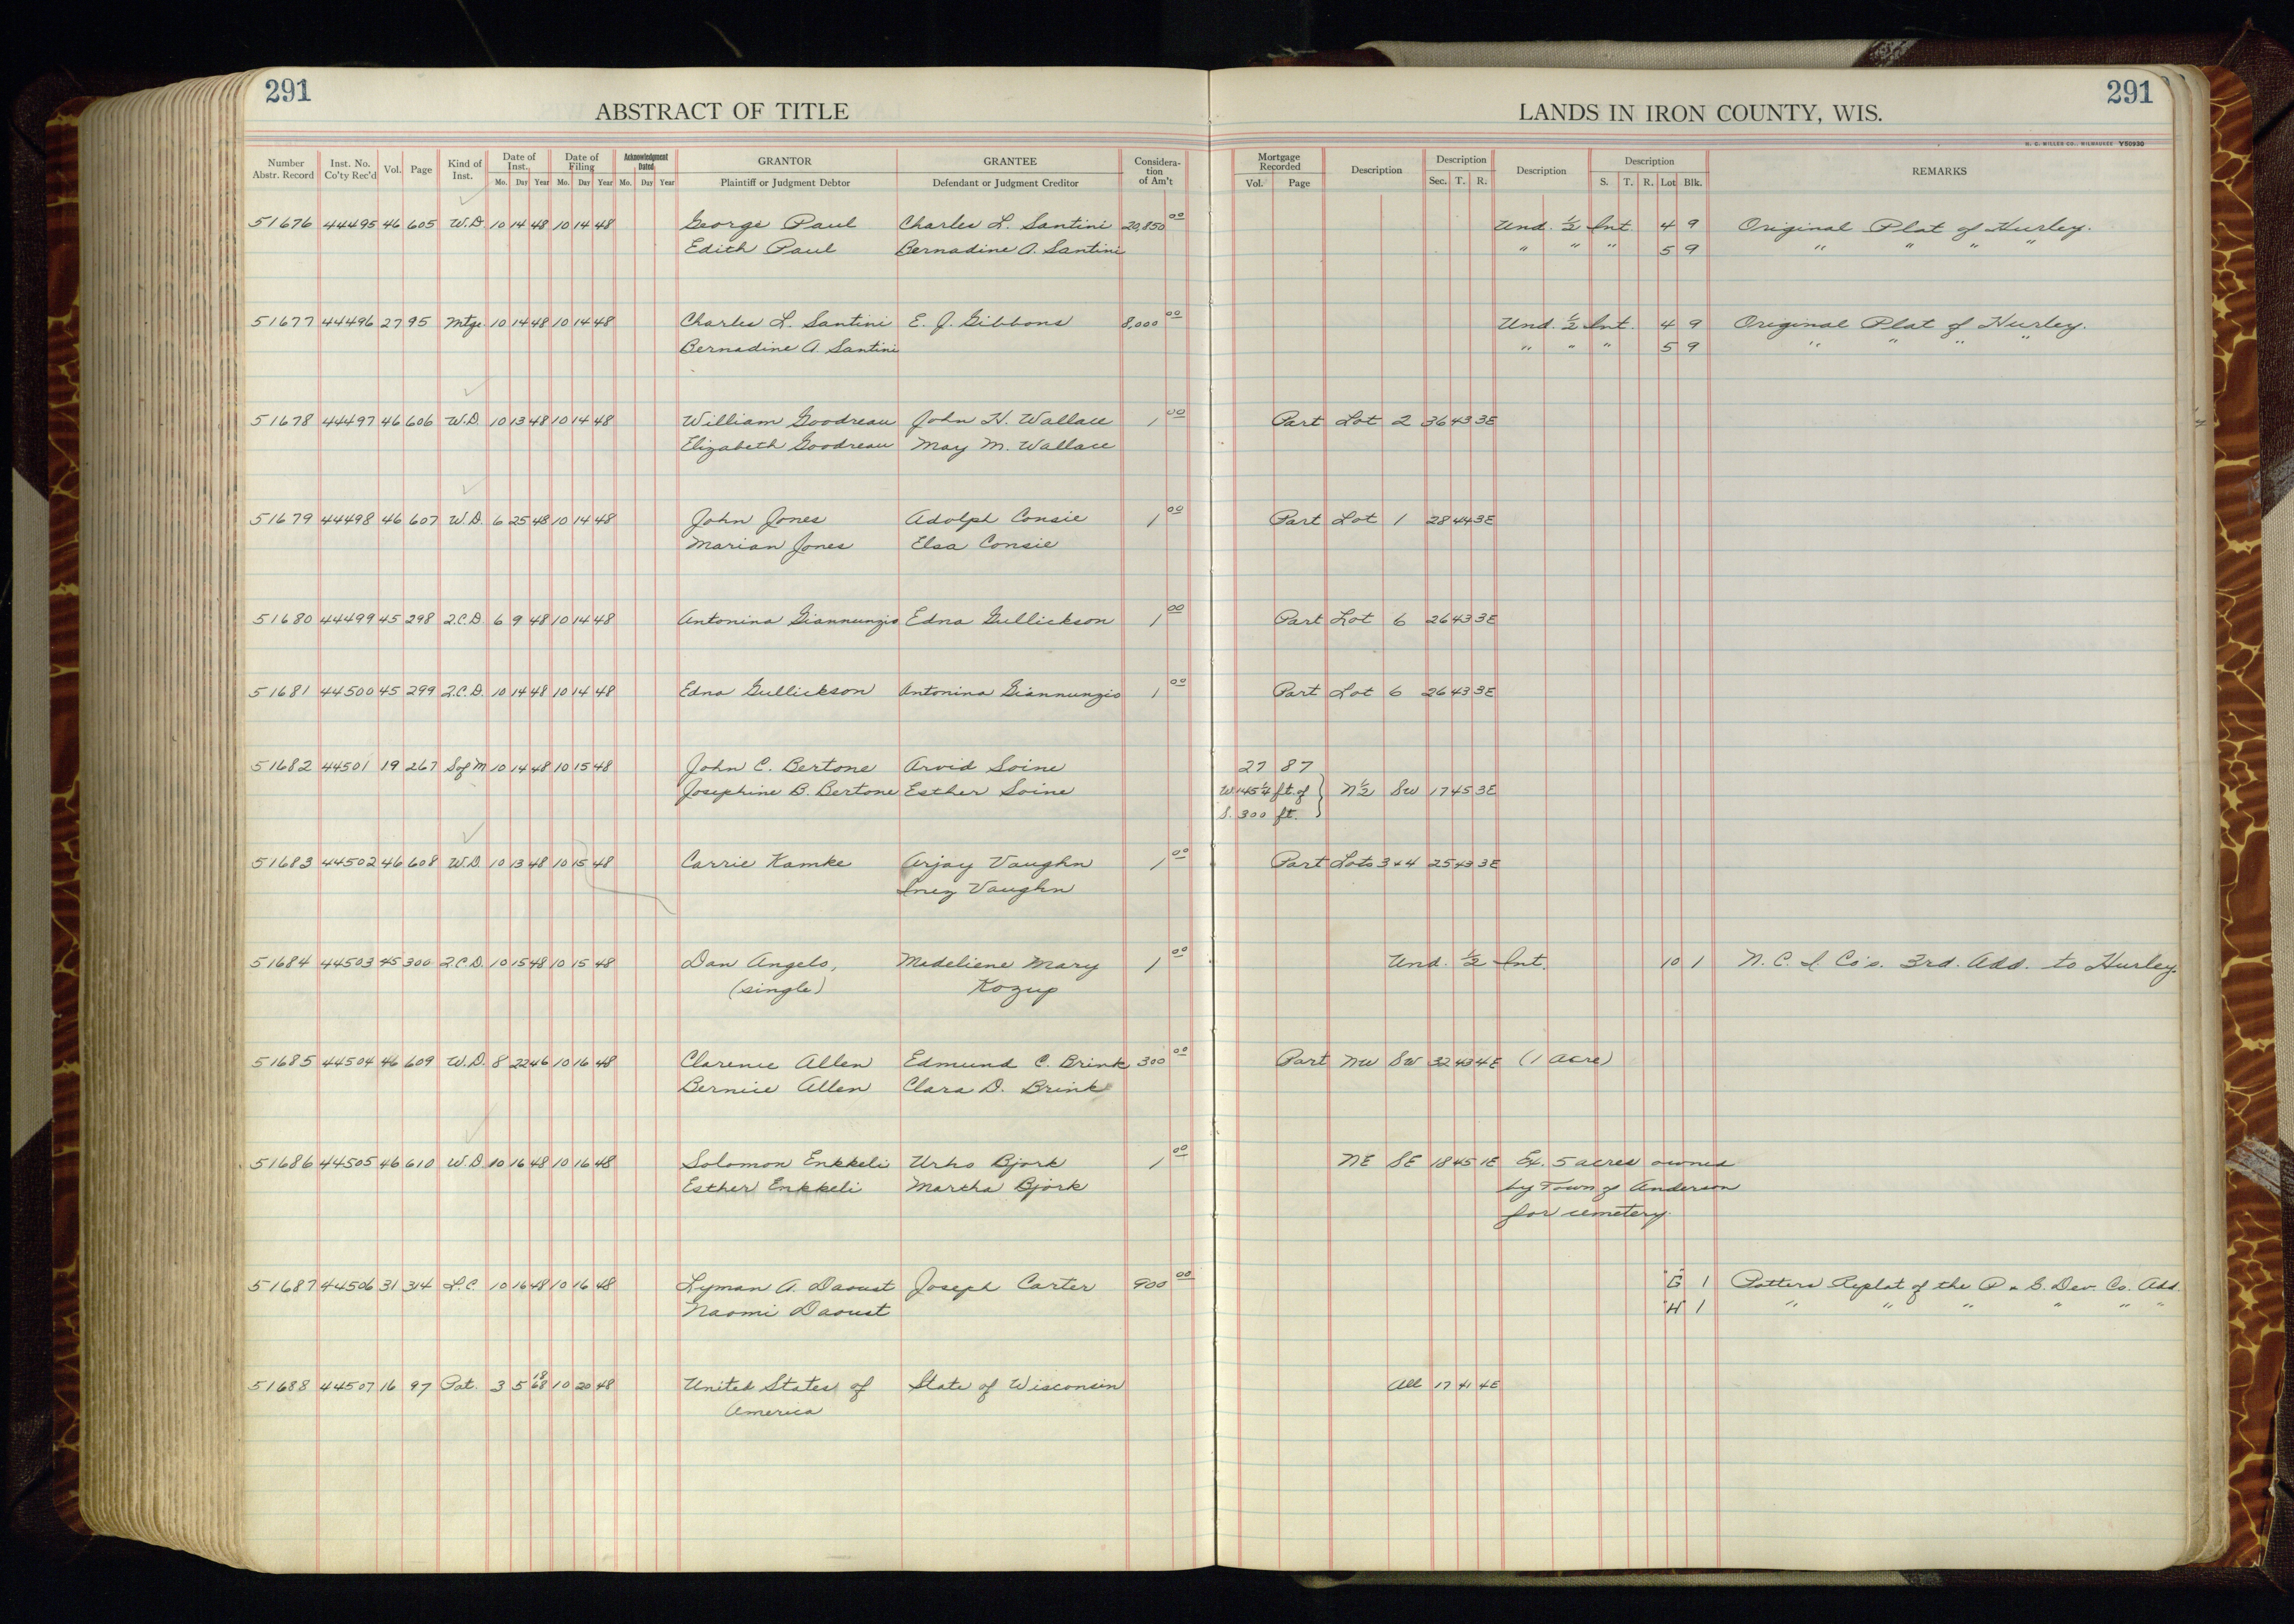 291
ABSTRACT OF TITLE
LANDS IN IRON COUNTY, WIS.
291
H. C. MILLER CO., MILWAUKEE Y50930
Number Abstr. Record Inst. No. Co'ty Rec'd Vol. Page Kind of Inst. Date of Inst. Mo. Day Year Date of Filing Mo. Day Year Acknowledgment Dated Mo. Day Year GRANTOR Plaintiff or Judgment Debtor GRANTEE Defendant or Judgment Creditor Considera-tion of Am't Mortgage Recorded Vol. Page Description Description Sec. T. R. Description Description S. T. R. Lot Blk. REMARKS
51676 44495 46 605 W.D. 10 14 48 10 14 48 George Paul Charles L. Santini 20,850 00 Und. 1/2 Int. 4 9 Original Plat of Hurley.
Edith Paul Bernadine A. Santini " " " 5 9 " " " "
51677 44496 27 95 Mtge. 10 14 48 10 14 48 Charles L. Santini E. J. Gibbons 8,000 00 Und. 1/2 Int. 4 9 Original Plat of Hurley.
Bernadine A. Santini " " " 5 9 " " " "
51678 44497 46 606 W.D. 10 13 48 10 14 48 William Goodreau John H. Wallace 1 00 Part Lot 2 36 43 3E
Elizabeth Goodreau May M. Wallace
51679 44498 46 607 W.D. 6 25 48 10 14 48 John Jones Adolph Consie 1 00 Part Lot 1 28 44 3E
Marian Jones Elsa Consie
51680 44499 45 298 Q.C.D. 6 9 48 10 14 48 Antonina Giannunzio Edna Gullickson 1 00 Part Lot 6 26 43 3E
51681 44500 45 299 Q.C.D. 10 14 48 10 14 48 Edna Gullickson Antonina Giannunzio 1 00 Part Lot 6 26 43 3E
51682 44501 19 267 S of M 10 14 48 10 15 48 John C. Bertone Arvid Soine 27 87
Josephine B. Bertone Esther Soine W. 145 1/4 ft. of N 1/2 SW 17 45 3E
S. 300 ft.
51683 44502 46 608 W.D. 10 13 48 10 15 48 Carrie Kamke Arjay Vaughn 1 00 Part Lots 3 & 4 25 43 3E
Inez Vaughn
51684 44503 45 300 Q.C.D. 10 15 48 10 15 48 Dan Angelo, Madeliene Mary 1 00 Und. 1/2 Int. 10 1 N. C. I. Co's. 3rd. Add. to Hurley.
(single) Kozup
51685 44504 46 609 W.D. 8 22 46 10 16 48 Clarence Allen Edmund C. Brink 300 00 Part NW SW 32 43 4E (1 acre)
Bernice Allen Clara D. Brink
51686 44505 46 610 W.D. 10 16 48 10 16 48 Solomon Enkkeli Urho Bjork 1 00 NE SE 18 45 1E Ex. 5 acres owned
Esther Enkkeli Martha Bjork by Town of Anderson
for cemetery.
51687 44506 31 314 L.C. 10 16 48 10 16 48 Lyman A. Daoust Joseph Carter 900 00 "G" 1 Potters Replat of the P & G. Dev. Co. Add.
Naomi Daoust "H" 1 " " " " " "
51688 44507 16 97 Pat. 3 5 1868 10 20 48 United States of State of Wisconsin All 17 41 4E
America